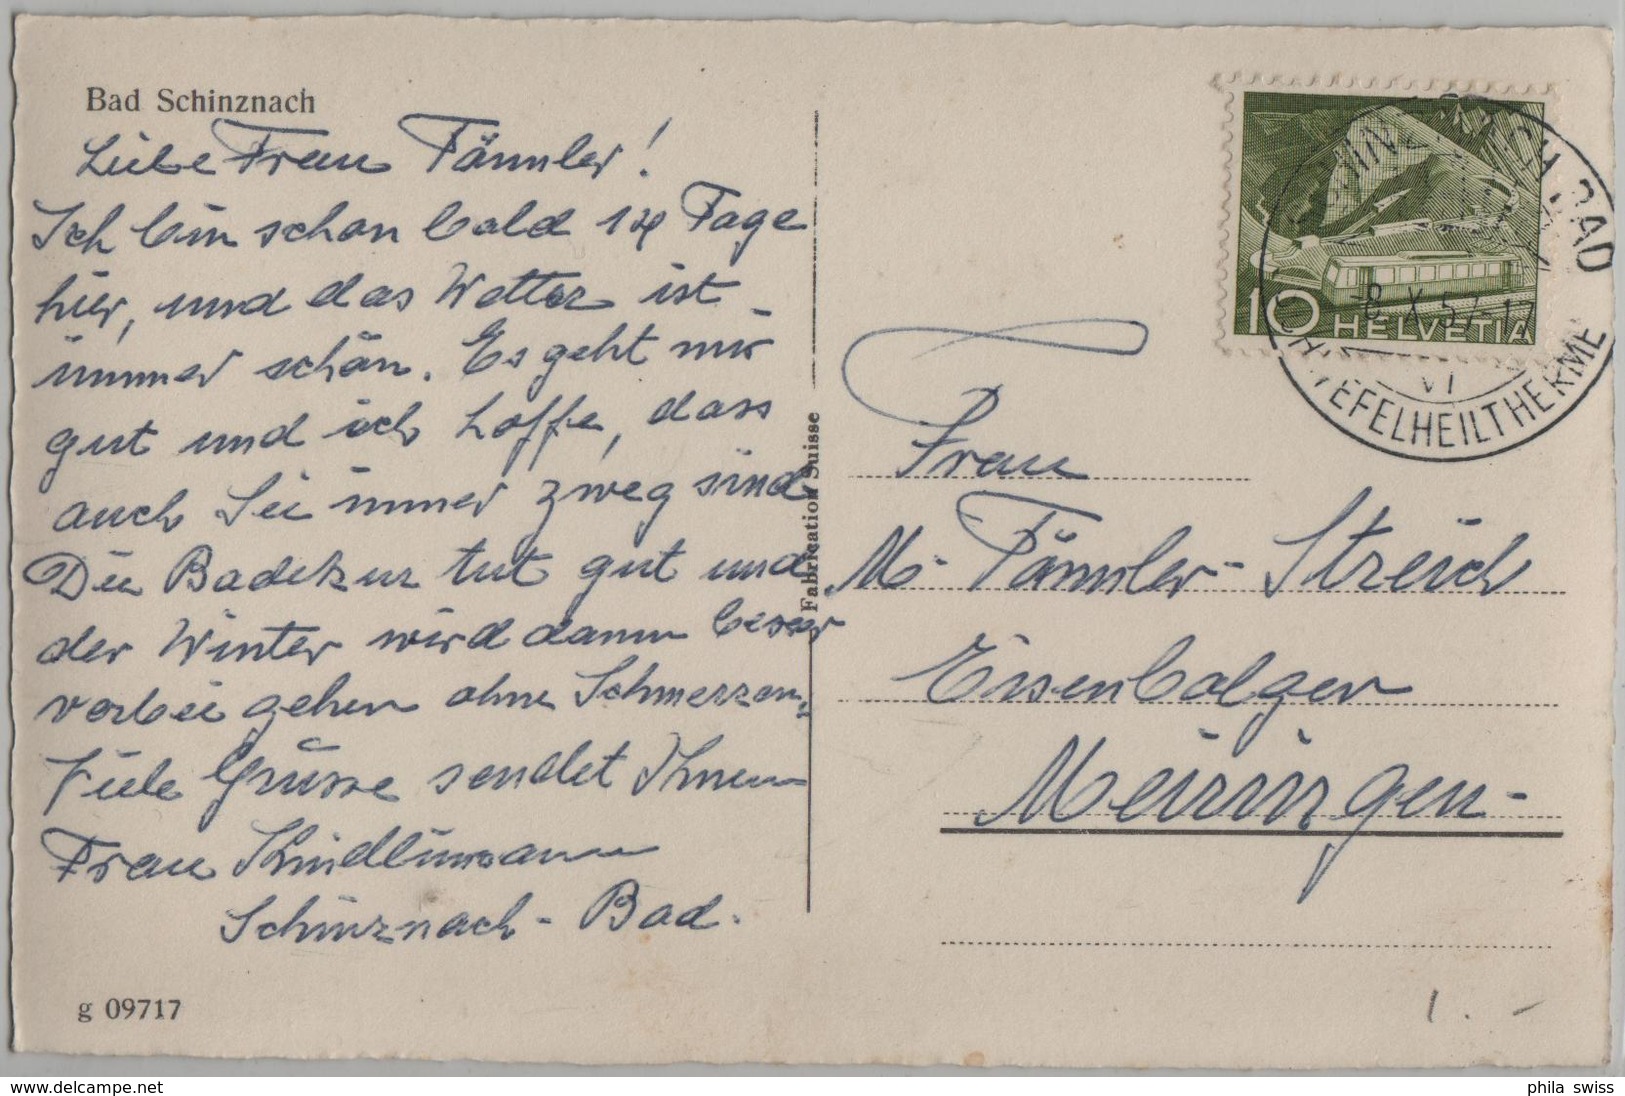 Bad Schinznach
Liebe Frau Tännler!
Ich bin schon bald 14 Tage
hier, und das Wetter ist
immer schön. Es geht mir
gut und ich hoffe, dass
auch Sie immer zweg sind
Die Badekur tut gut und
der Winter wird dann besser
vorbei gehen ohne Schmerzen.
Viele Grüsse sendet Ihnen
Frau
Schinznach-Bad.
g 09717
Fabrication Suisse
10 HELVETIA
BAD
-8.X.57-17
VI
SCHWEFELHEILTHERME
Frau
M. Tännler-Streich
Eisenbolgen
Meiringen-
1.-
delcampe.net
phila swiss